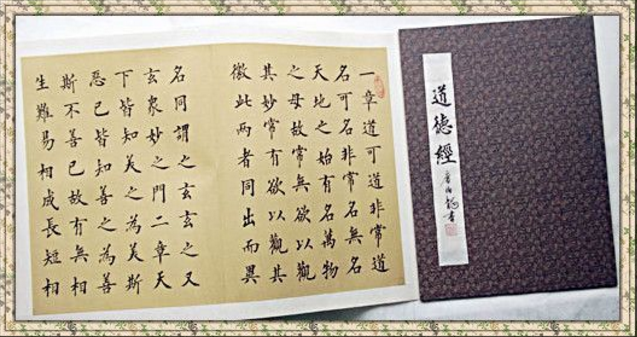 一章道可道非常道
名可名非常名無名
天地之始有名萬物
之母故常無欲以觀
其妙常有欲以觀其
徼此兩者同出而異
名同謂之玄玄之又
玄眾妙之門二章天
下皆知美之為美斯
惡已皆知善之為善
斯不善已故有無相
生難易相成長短相
道德經